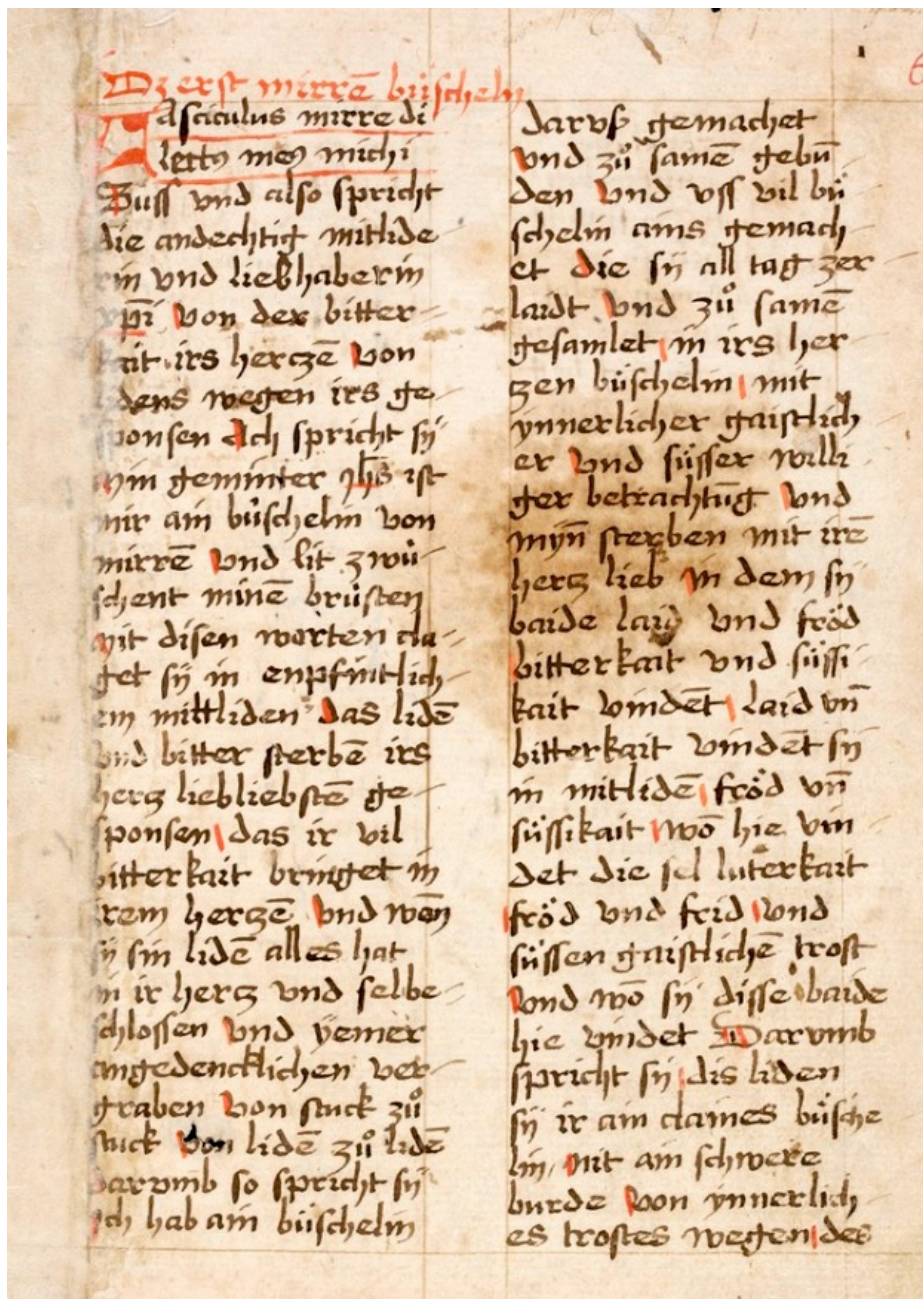 Dz erst mirrē büscheln
Fasciculus mirre di
lectꝯ meꝯ michi
Suss vnd also spricht
die andechtig mitlide
rin vnd liebhaberin
xp̄i Von der bitter-
kait irs herczē Von
lidens wegen irs ge-
sponsen Ach spricht sÿ
min geminter Jhs̄ ist
mir ain büschelin von
mirrē Vnd lit zwü-
schent minē brüsten
mit disen worten cla-
get sÿ in enpfintlich-
em mittliden das lidē
vnd bitter sterbē irs
hercz liebliebstē ge-
sponsen das ir vil
bitterkait bringet in
irem herczē Vnd wēn
sÿ sin lidē alles hat
in ir hercz vnd selbe-
schlossen Vnd yemer
angedencklichen ver-
graben Von stuck zů
stuck Von lidē zů lidē
Darvmb so spricht sÿ
Ich hab ain büschelin
darvß gemachet
Vnd zů samē gebū
den Vnd vss vil bü
schelin ains gemach-
et die sÿ all tag zer
laidt Vnd zů samē
gesamlet in irs her-
zen büschelin mit
ynnerlicher gaistlich
er Vnd süsser willi
ger betrachtūg Vnd
myn̄ sterben mit irē
hercz lieb In dem sÿ
baide laid vnd fröd
bitterkait vnd süssi-
kait vindēt laid vn̄
bitterkait vindēt sÿ
in mitlidē fröd vn̄
süssikait Wō hie vin
det die sel luterkait
fröd vnd frid Vnd
süssen gaistlichē trost
Vnd wō sÿ disse baide
hie vindet Darvmb
spricht sÿ dis liden
sÿ ir ain claines büsche
lin, nit ain schwere
burde Von ynnerlich
es trostes wegen des